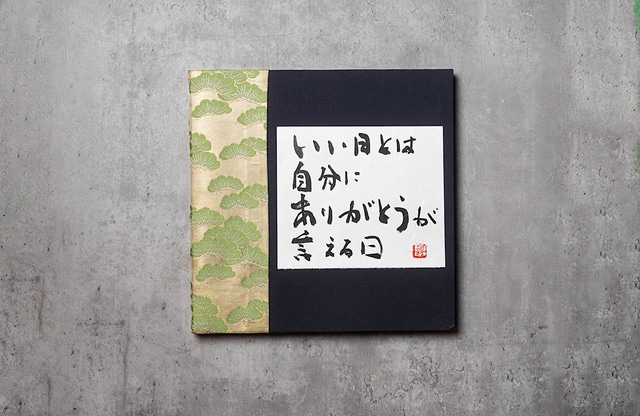 いい日とは
自分に
ありがとうが
言える日